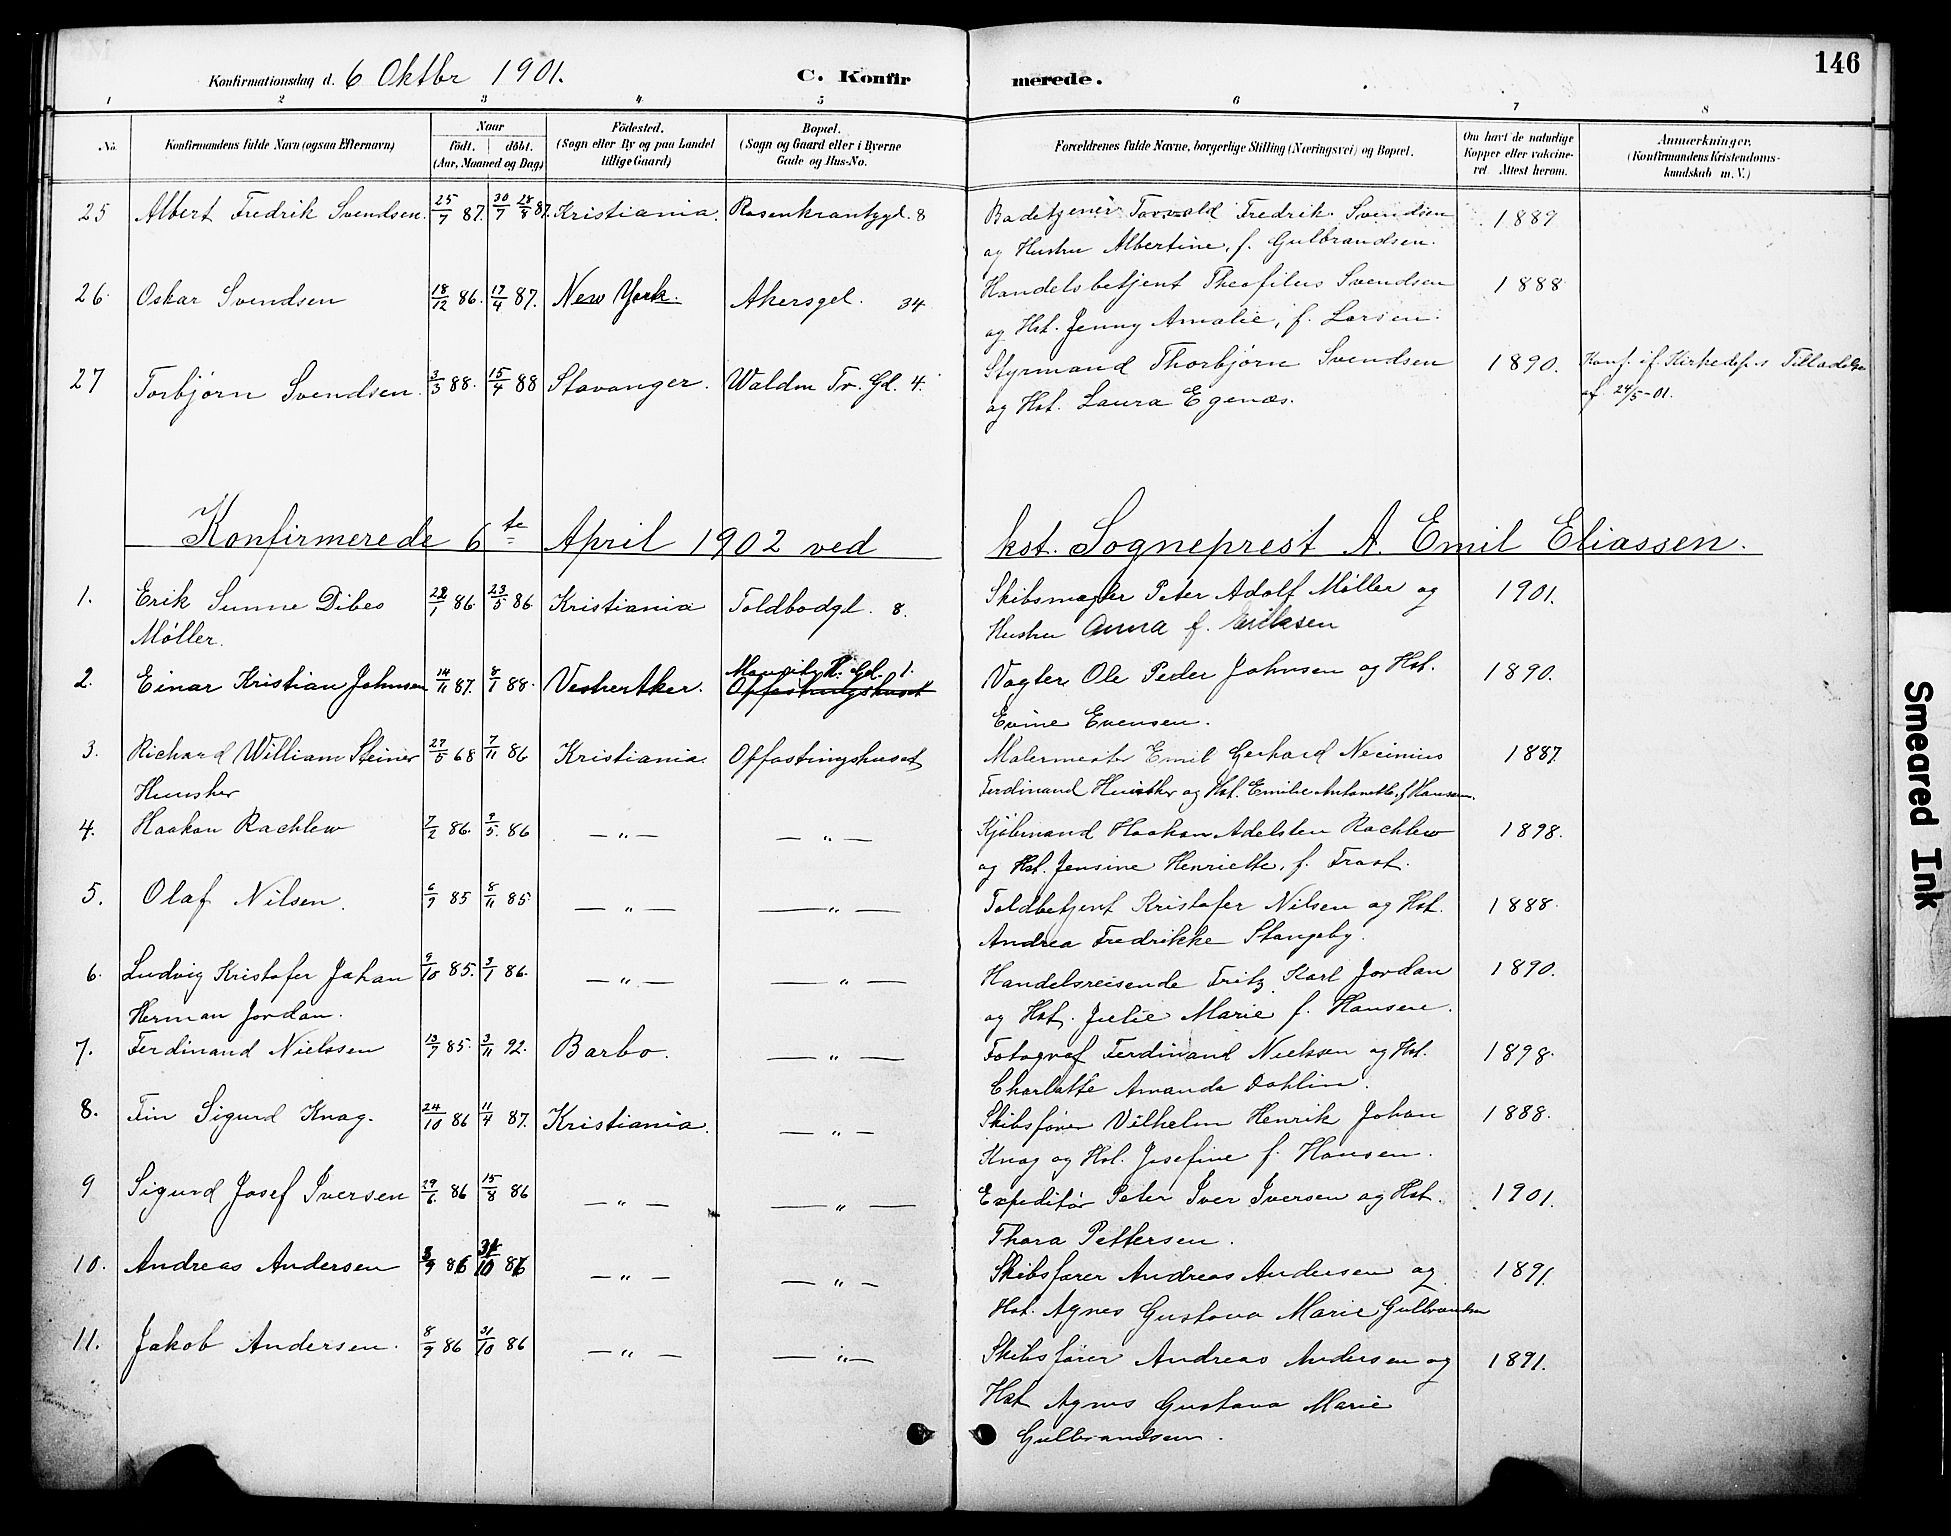 146
Konfirmationsdag d. 6 Oktbr 1901. C. Konfirmerede.
1 2 3 4 5 6 7 8
No. Konfirmandens fulde Navn (ogsaa Efternavn) Naar født. døbt. (Aar, Maaned og Dag) Födested. (Sogn eller By og paa Landet tillige Gaard) Bopæl. (Sogn og Gaard eller i Byerne Gade og Hus-No. Forældrenes fulde Navne, borgerlige Stilling (Næringsvei) og Bopæl. Om havt de naturlige Kopper eller vaccineret. Attest herom. Anmærkninger. (Konfirmandens Kristendomskundskab m.V.)
25 Albert Fredrik Svendsen. 25/7 87. 30/7 28/8 87. Kristiania. Rosenkrantzgd. 8 Badetjener Torvald Fredrik Svendsen 1889
og Hustru Albertine, f. Gulbrandsen.
26. Oskar Svendsen 18/12 86. 17/4 87. New York. Akersgd. 34 Handelsbetjent Theofilus Svendsen 1888
og Hst. Jenny Amalie, f. Larsen.
27 Torbjørn Svendsen. 3/3 88. 15/4 88 Stavanger. Waldm Tr. Gd. 4. Styrmand Thorbjørn Svendsen 1890. Konf. if. Kirkedep.s Tilladelse
og Hst. Laura Egenæs. af 24/5-01.
Konfirmerede 6te April 1902 ved kst. Sogneprest A. Emil Eliassen.
1. Erik Sunne Dibes 22/1 86. 23/5 86 Kristiania Toldbodgd. 8. Skibsmægler Peter Adolf Møller og 1901.
Møller. Hustru Anna f. Eriksen
2. Einar Kristian Johnsen 14/11 87. 8/1 88. Vestre Aker. Gd. 1. Vogter Ole Peder Johnsen og Hst. 1890.
Opfostringshuset
Evine Evensen.
3. Richard William Steiner 27/5 68 7/11 86 Kristiania. Opfostringshuset Malermester Emil Gerhard 1887.
Hunsker Ferdinand og Hst. Emilie Antonette, f Hansen.
4. Haakon Rachlew 7/2 86. 9/5. 86 — „ — — „ — Kjøbmand Haakon Adelsten Rachlew 1898.
og Hst. Jensine Henriette, f. Frost.
5. Olaf Nilsen. 6/9 85 8/11 85 — „ — — „ — Toldbetjent Kristofer Nilsen og Hst. 1888.
Andrea Fredrikke Stangeby.
6. Ludvig Kristofer Johan 9/10 85. 3/1 86. — „ — — „ — Handelsreisende Fritz Karl Jordan 1890.
Herman Jordan. og Hst. Julie Marie f. Hansen.
7. Ferdinand Nielssen 13/7 85. 3/11 92. Barbo. — „ — Fotograf Ferdinand Nielssen og Hst. 1898.
Charlotte Amanda Dahlin.
8. Fin Sigurd Knag. 24/10 86 11/4 87. Kristiania. — „ — Skibsfører Vilhelm Henrik Johan 1888.
Knag og Hst. Josefine f. Hansen.
9 Sigurd Josef Iversen 29/6. 86 15/8 86 — „ — — „ — Expeditør Peter Iver Iversen og Hst. 1901.
Thora Pettersen.
10. Andreas Andersen 8/9 86 31/10 86 — „ — — „ — Skibsfører Andreas Andersen og 1891.
Hst. Agnes Gustava Marie Gulbrandsen
11. Jakob Andersen. 8/9 86 31/10 86 — „ — — „ — Skibsfører Andreas Andersen og 1891.
Hst Agnes Gustava Marie
Gulbrandsen.
Smeared Ink